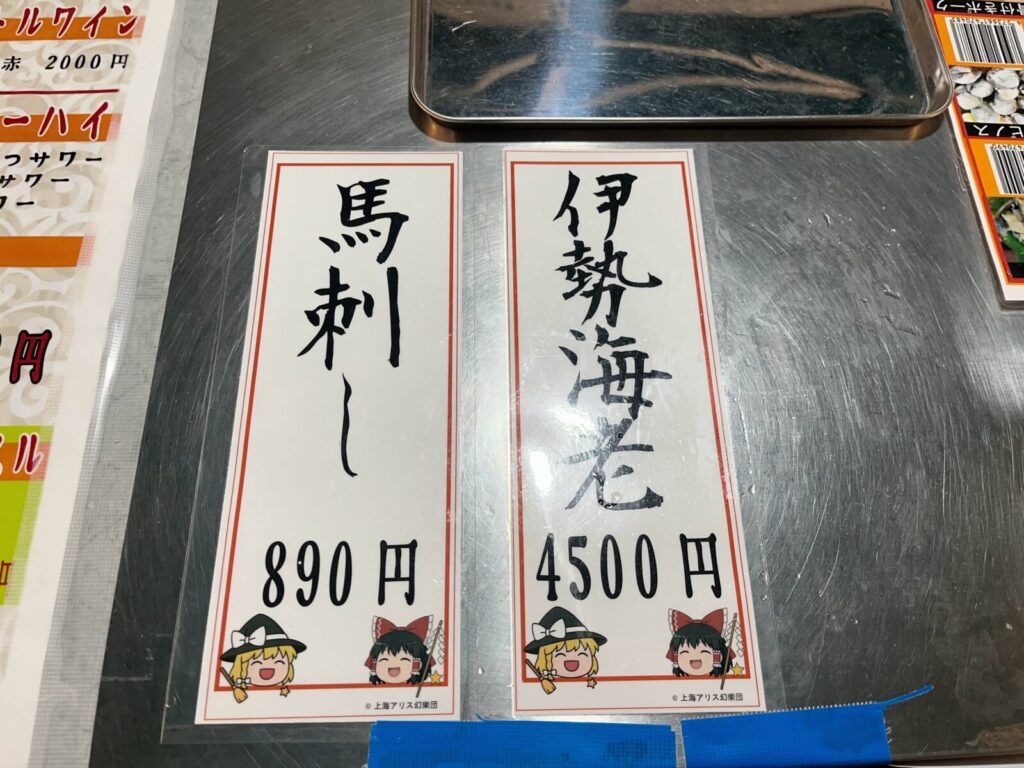 ールワイン
赤 2000円
ーハイ
つサワー
サワー
ワー
円
ル
馬刺し
890円
© 上海アリス幻樂団
伊勢海老
4500円
© 上海アリス幻樂団
付きポーク
ピノス